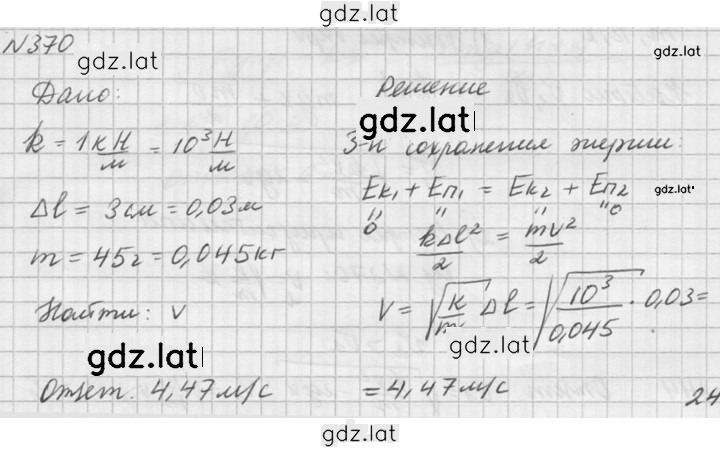 gdz.lat
N370
gdz.lat
Дано:
k = 1 кН/м = 10³ Н/м
Δl = 3 см = 0,03 м
m = 45 г = 0,045 кг
Найти: v
gdz.lat
Ответ. 4,47 м/с
Решение
gdz.lat
З-н сохранения энергии:
Eк₁ + Eп₁ = Eк₂ + Eп₂
gdz.lat
" " " "
0 kΔl²/2 = mv²/2 0
V = √(k/m) Δl = √(10³/0,045) · 0,03 =
gdz.lat
= 4,47 м/с
24
gdz.lat